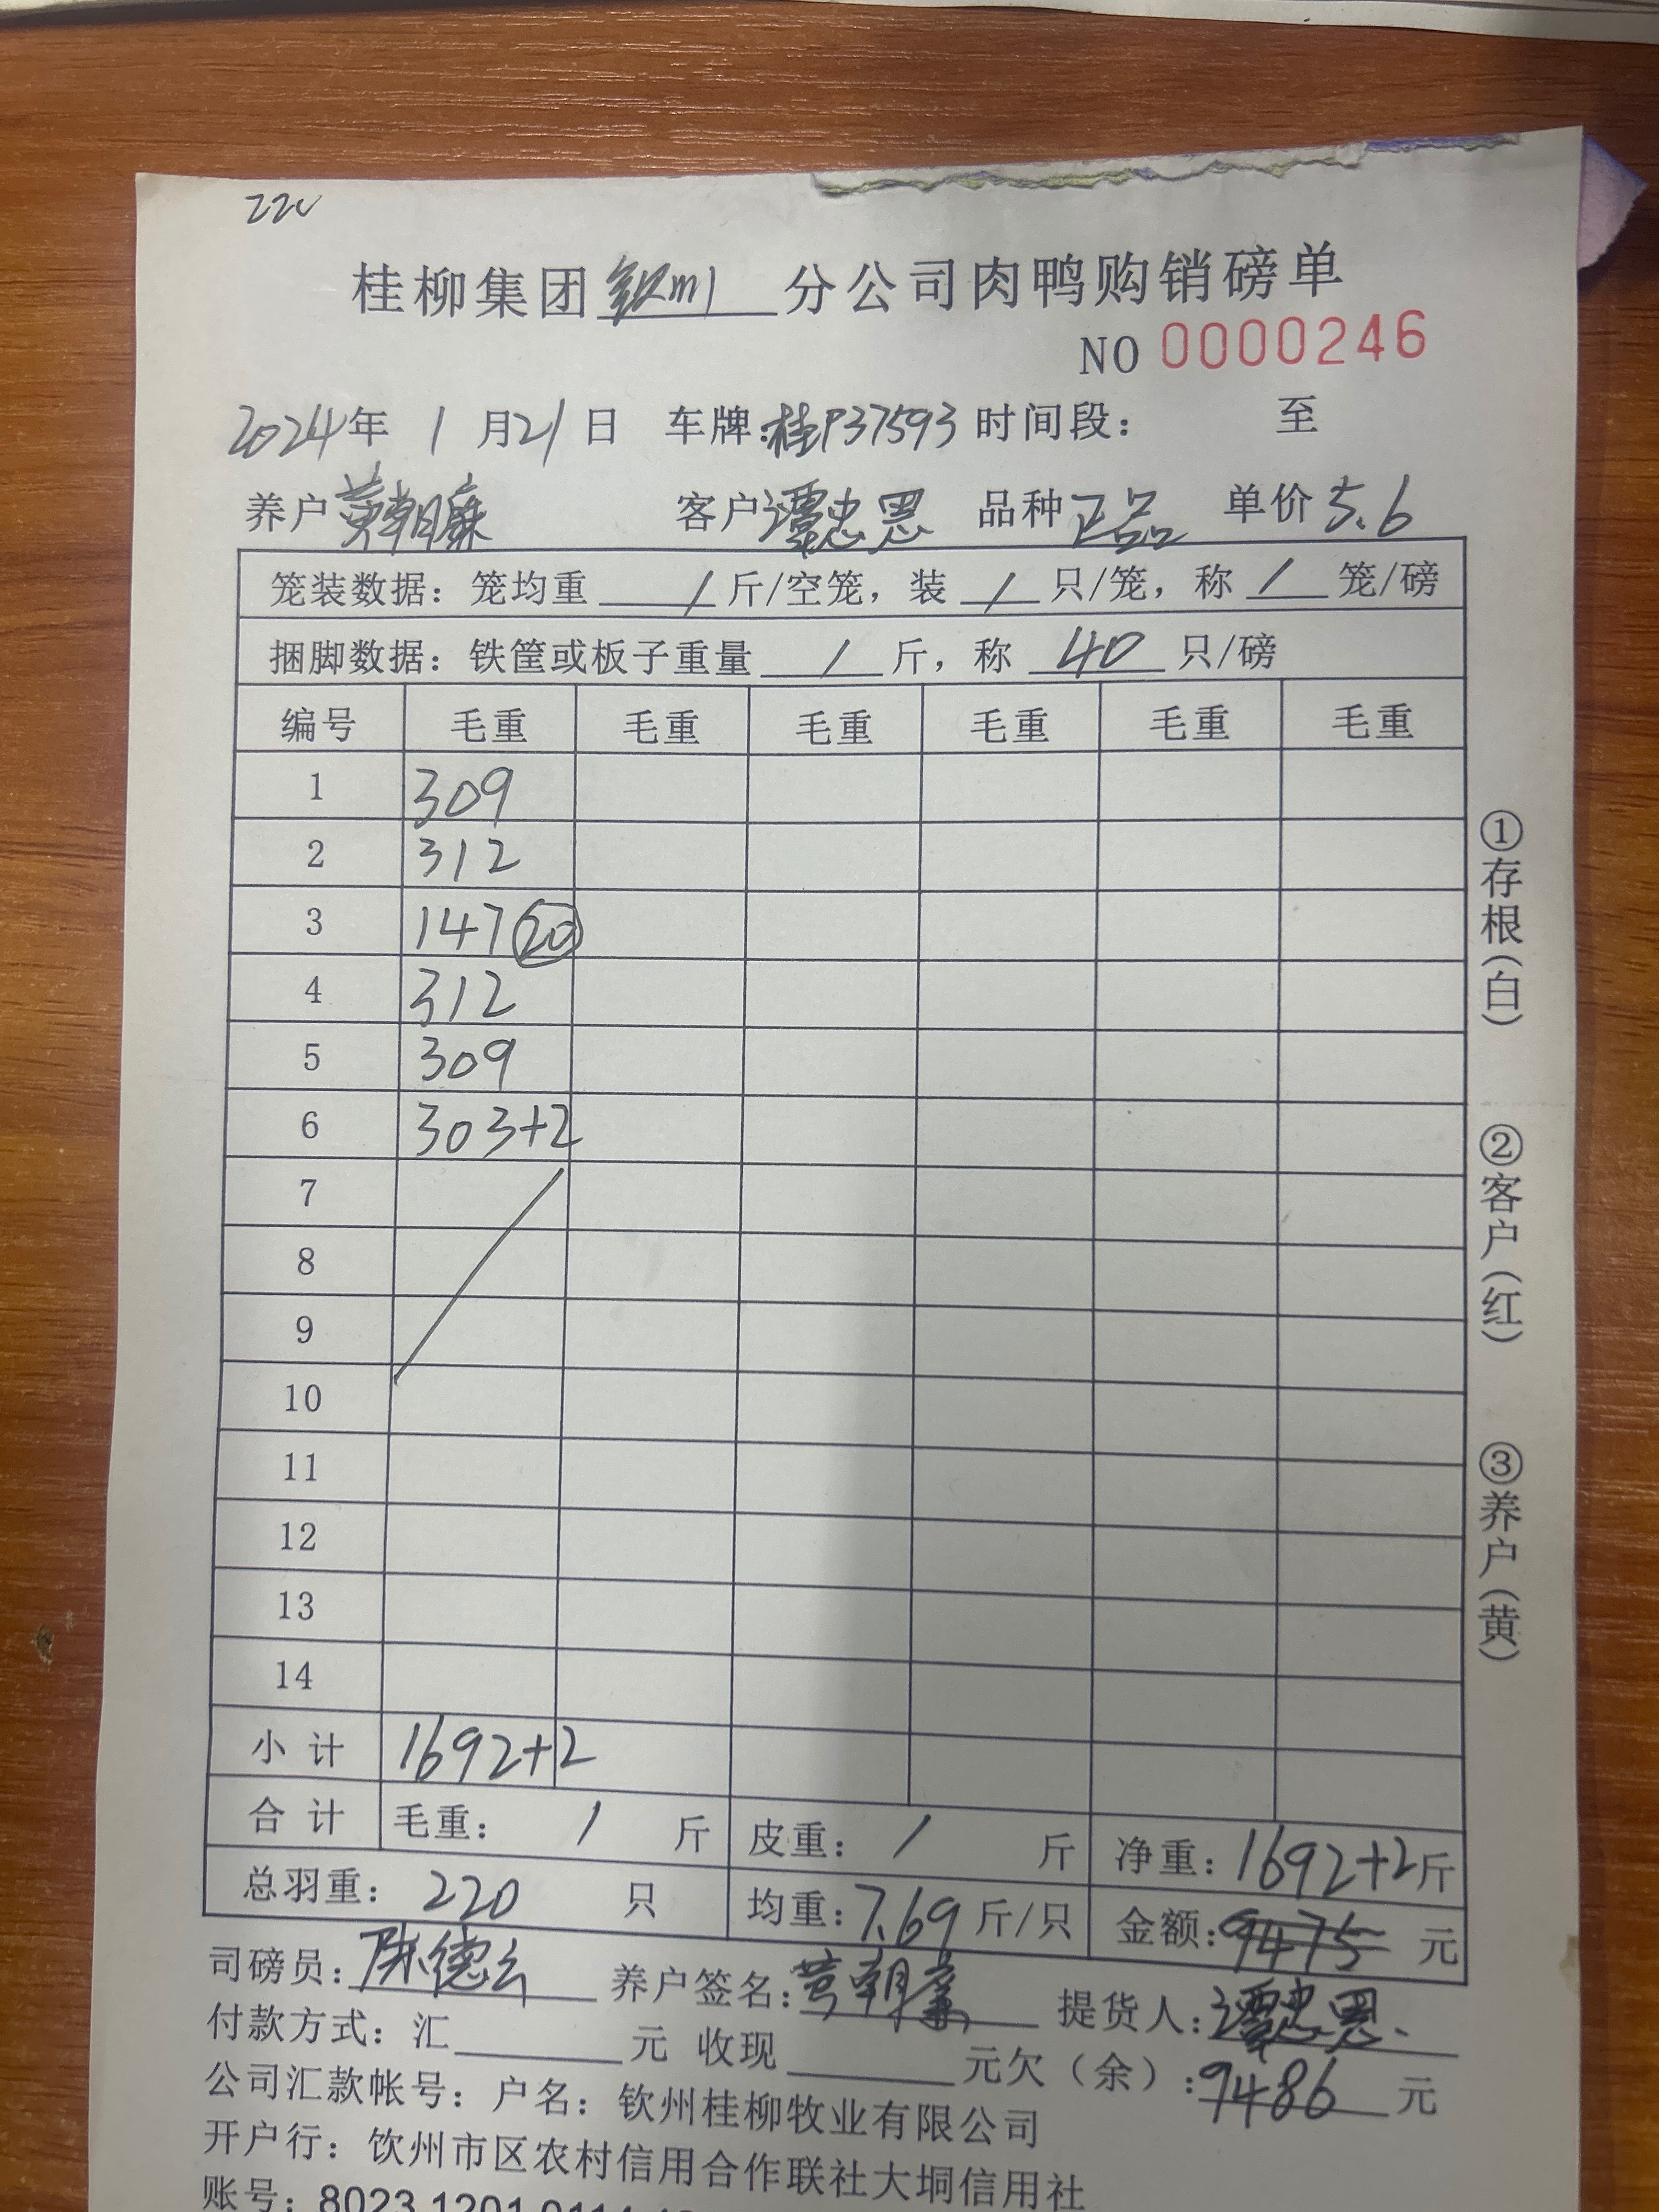 220
桂柳集团钦州分公司肉鸭购销磅单
NO 0000246
2024年 1 月21日 车牌:桂P37593 时间段: 至
养户黄朝廉 客户谭忠恩 品种正品 单价5.6
笼装数据：笼均重 / 斤/空笼，装 / 只/笼，称 / 笼/磅
捆脚数据：铁筐或板子重量 / 斤，称 40 只/磅
编号 毛重 毛重 毛重 毛重 毛重 毛重
1 309
2 312
3 147 ⑳
4 312
5 309
6 303+2
7
8
9
10
11
12
13
14
小 计 1692+2
合 计 毛重: / 斤 皮重: / 斤 净重: 1692+2斤
总羽重: 220 只 均重:7.69斤/只 金额:9475 元
司磅员:陈德云 养户签名:黄朝廉 提货人:谭忠恩.
付款方式: 汇 元 收现 元欠（余）:9486 元
公司汇款帐号: 户名: 钦州桂柳牧业有限公司
开户行: 钦州市区农村信用合作联社大垌信用社
账号: 8023 1201 0114
①存根(白) ②客户(红) ③养户(黄)